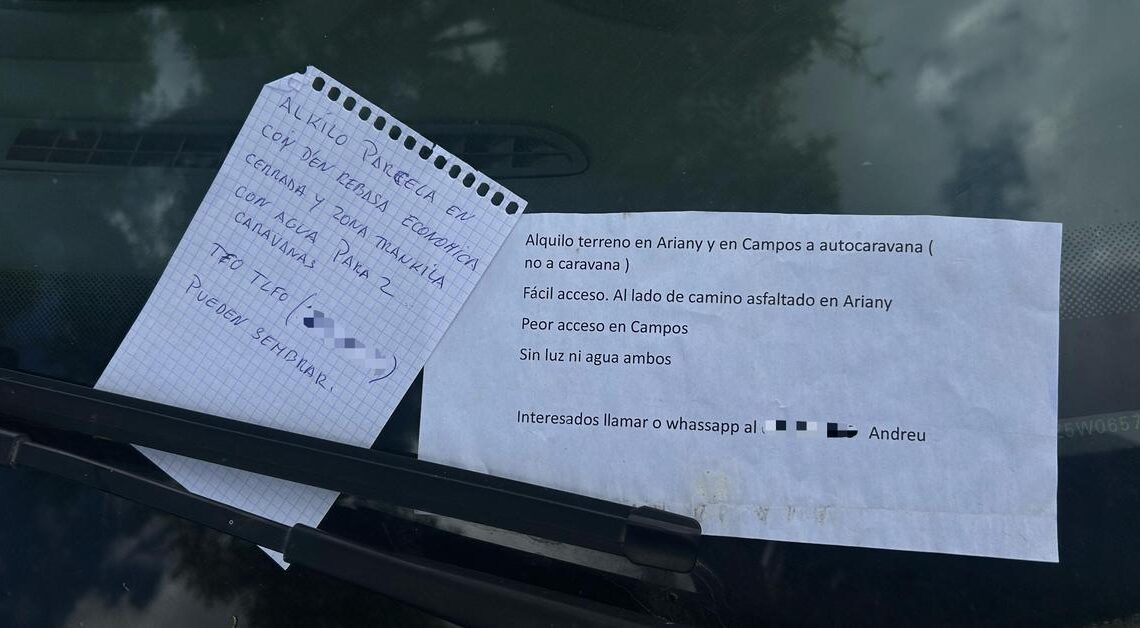 ALKILO PARCELA EN
CON D'EN REBASA ECONOMICA
CERRADA Y ZONA TRANKILA
CON AGUA PARA 2
CARAVANAS
TEO TLFO (
)
PUEDEN SEMBRAR.
Alquilo terreno en Ariany y en Campos a autocaravana (
no a caravana )
Fácil acceso. Al lado de camino asfaltado en Ariany
Peor acceso en Campos
Sin luz ni agua ambos
Interesados llamar o whassapp al Andreu